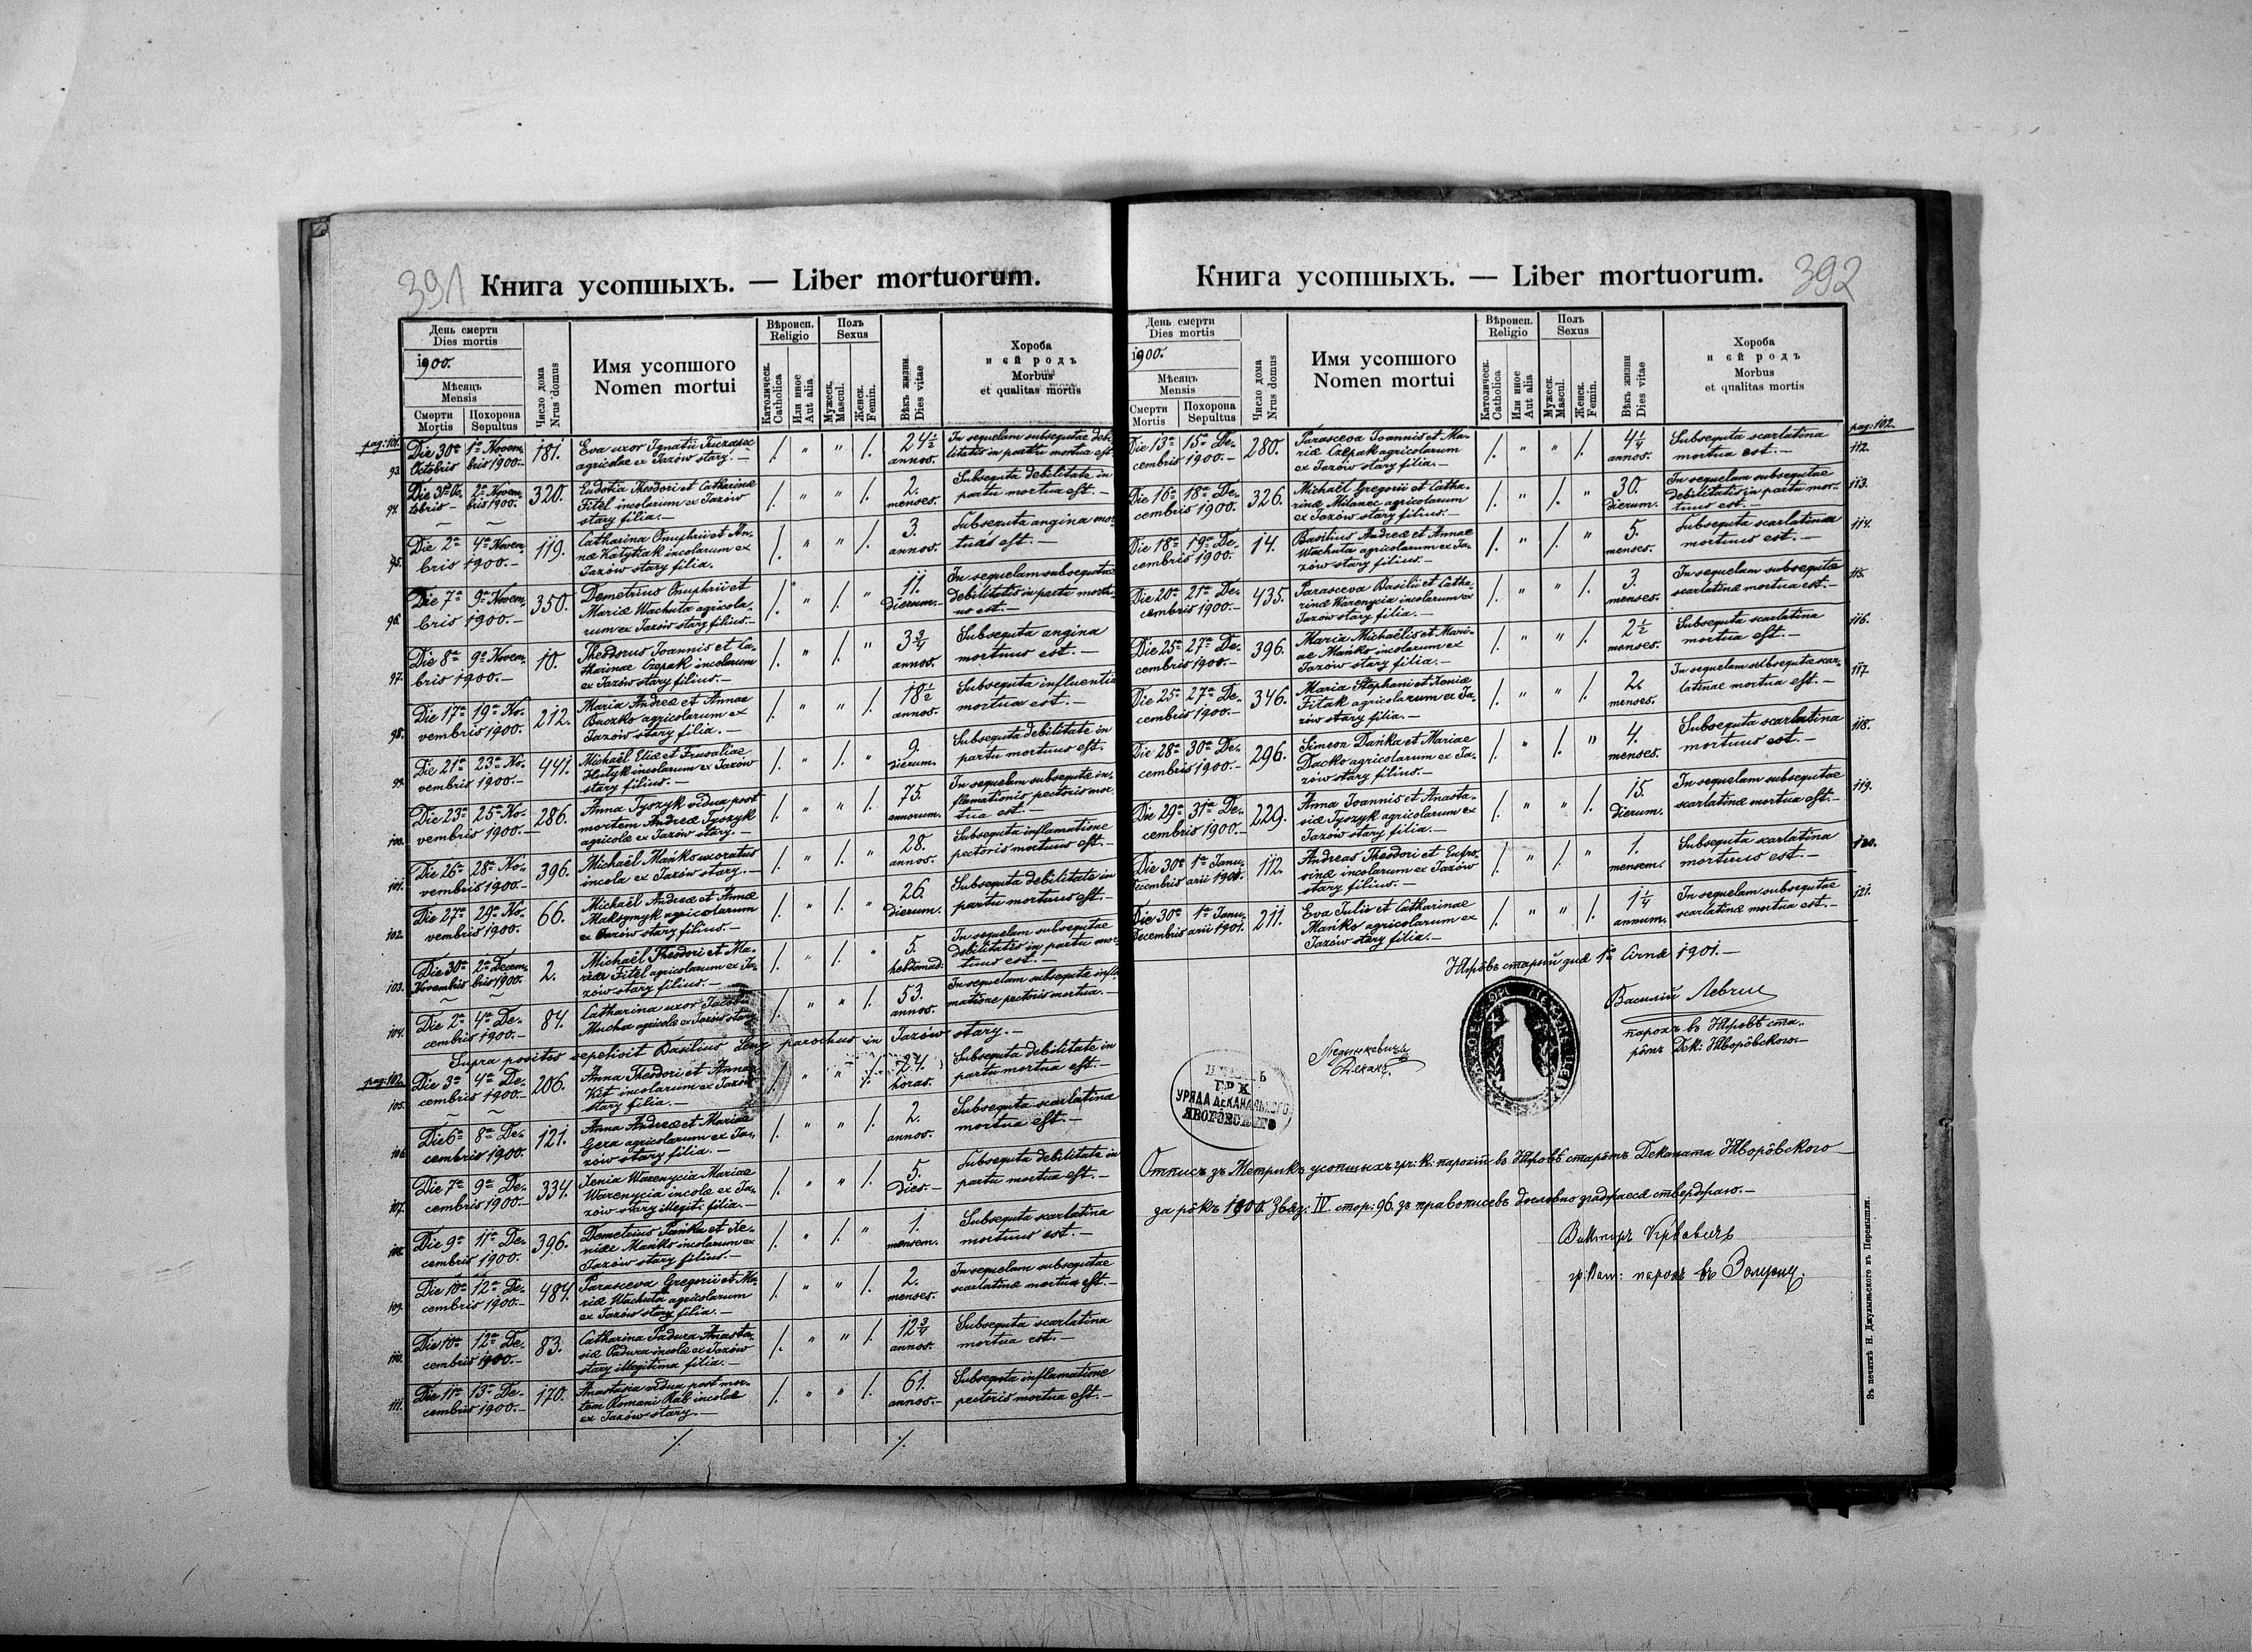 391
Книга усопшыхъ. — Liber mortuorum.
День смерти
Dies mortis
1900.
Мѣсяць
Mensis
Смерти
Mortis
Похорона
Sepultus
Число дома
Nrus domus
Имя усопшого
Nomen mortui
Вѣроисп.
Religio
Католическ.
Catholica
Или иное
Aut alia
Полъ
Sexus
Мужеск.
Mascul.
Женск.
Femin.
Вѣкъ жизни
Dies vitae
Хороба
и єй родъ
Morbus
et qualitas mortis
pag: 101.
93. Die 30ª Octobris 1ª Novembris 1900.— 181. Eva uxor Ignatii
agricolae ex Jazów stary.— /. " " /. 24½ annos. In sequelam subsequtae debilitatis in partu mortua est
94. Die 31ª Octobris — 2ª Novembris 1900. 320. Eudotia Theodori et Catharinæ
Fitel incolarum ex Jazów
stary filia.— /. " " /. 2. menses. Subsequta debilitate in
partu mortua est.—
95. Die 2ª 4ª Novembris 1900.— 119. Catharina Onuphrii et Annæ
Katytiak incolarum ex
Jazów stary filia. /. " " /. 3. annos. Subsequta angina mortua est.—
96. Die 7ª 9ª Novembris 1900.— 350. Demetrius Onuphrii et
Mariæ Wachuta agricolarum
ex Jazów stary filius.— /. " /. " 11. dierum.— In sequelam subsequtae
debilitatis in partu mortuus est.—
97. Die 8ª 9ª Novembris 1900.— 10. Theodorus Joannis et Catharinae
Czepak incolarum
ex Jazów stary filius.— /. " /. " 3¾ annos. Subsequta angina
mortuus est.—
98. Die 17ª 19ª Novembris 1900. 212. Maria Andreæ et Annae
Baczko agricolarum ex
Jazów stary filia.— /. " " /. 18½ annos. Subsequta influentia
mortua est.—
99. Die 21ª 23ª Novembris 1900.— 441. Michaël Eliæ et
Hutyk incolarum ex Jazów
stary filius.— /. " /. " 9. dierum. Subsequta debilitate in
partu mortuus est.
100. Die 23ª 25ª Novembris 1900.— 286. Anna Tyszyk vidua post
mortem Andreæ Tyszyk
agricolæ ex Jazów stary.— /. " " /. 75. annorum. In sequelam subsequtæ inflamationis pectoris mortua est.—
101. Die 26ª 28ª Novembris 1900.— 396. Michaël Mańko uxoratus
incola ex Jazów stary.— /. " /. " 28. annos. Subsequta inflamatione
pectoris mortuus est.—
102. Die 27ª 29ª Novembris 1900. 66. Michaël Andreæ et Annæ
Maksymyk agricolarum
ex Jazów stary filius.— /. " /. " 26. dierum. Subsequta debilitate in
partu mortuus est.—
103. Die 30ª Novembris 2ª Decembris 1900. 2. Michaël Theodori et Mariæ
Fitel agricolarum ex Jazów
stary filius.— /. " /. " 5. hebdomad. In sequelam subsequtae
debilitatis in partu mortuus est.—
104. Die 2ª 4ª Decembris 1900.— 84. Catharina uxor Jacobi
Mucha agricolæ ex Jazów stary /. " " /. 53. annos. In sequelam subsequta inflamatione pectoris mortua.—
Supra positos sepelivit Basilius parochus in Jazów stary.—
pag: 102.
105. Die 3ª 4ª Decembris 1900.— 206. Anna Theodori et Annæ
Kit incolarum ex Jazów
stary filia.— /. " " /. 24. horas. Subsequta debilitate in
partu mortua est.—
106. Die 6ª 8ª Decembris 1900. 121. Anna Andreæ et Mariae
Gera agricolarum ex Jazów
stary filia.— /. " " /. 2. annos. Subsequta scarlatina
mortua est.—
107. Die 7ª 9ª Decembris 1900.— 334. Xenia Warenycia Mariae
Warenycia incolæ ex Jazów
stary illegit: filia.— /. " " /. 5. dies.— Subsequta debilitate in
partu mortua est.—
108. Die 9ª 11ª Decembris 1900. 396. Demetrius Pańka et Xeniæ
Mańko incolarum ex
Jazów stary filius.— /. " /. " 1. mensem. Subsequta scarlatina
mortuus est.—
109. Die 10ª 12ª Decembris 1900.— 484. Parasceva Gregorii et Mariæ
Wachuta agricolarum
ex Jazów stary filia.— /. " " /. 2. menses. In sequelam subsequtae
scarlatinæ mortua est.—
110. Die 10ª 12ª Decembris 1900.— 83. Catharina Padura Anastasiæ
Padura incolæ ex Jazów
stary illegitima filia.— /. " " /. 12¾ annos. Subsequta scarlatina
mortua est.—
111. Die 11ª 13ª Decembris 1900.— 170. Anastasia vidua post mortem
Romani Rab incolæ
ex Jazów stary.— /. " " /. 61. annos.— Subsequta inflamatione
pectoris mortua est.—
/. /.
392
Книга усопшыхъ. — Liber mortuorum.
День смерти
Dies mortis
1900.
Мѣсяць
Mensis
Смерти
Mortis
Похорона
Sepultus
Число дома
Nrus domus
Имя усопшого
Nomen mortui
Вѣроисп.
Religio
Католическ.
Catholica
Или иное
Aut alia
Полъ
Sexus
Мужеск.
Mascul.
Женск.
Femin.
Вѣкъ жизни
Dies vitae
Хороба
и єй родъ
Morbus
et qualitas mortis
pag: 102.
Die 13ª 15ª Decembris 1900.— 280. Parasceva Joannis et Mariæ
Czepak agricolarum
ex Jazów stary filia.— /. " " /. 4¼ annos. Subsequta scarlatina
mortua est.— 112.
Die 16ª 18ª Decembris 1900. 326. Michaël Gregorii et Catharinæ
Milanec agricolarum
ex Jazów stary filius.— /. " /. " 30. dierum. In sequelam subsequtae
debilitatis in partu mortuus est.— 113.
Die 18ª 19ª Decembris 1900. 14. Basilius Andreæ et Annae
Wachuta agricolarum ex Jazów
stary filius.— /. " /. " 5. menses. Subsequta scarlatina
mortuus est.— 114.
Die 20ª 21ª Decembris 1900. 435. Parasceva Basilii et Catharinæ
Warenycia incolarum ex
Jazów stary filia.— /. " " /. 3. menses. In sequelam subsequtæ
scarlatinæ mortua est.— 115.
Die 25ª 27ª Decembris 1900.— 396. Maria Michaëlis et Mariae
Mańko incolarum ex
Jazów stary filia.— /. " " /. 2½ menses. Subsequta scarlatina
mortua est.— 116.
Die 25ª 27ª Decembris 1900.— 346. Maria Stephani et Xeniæ
Fitak agricolarum ex Jazów
stary filia.— /. " " /. 2. menses. In sequelam subsequtæ scarlatinae mortua est.— 117.
Die 28ª 30ª Decembris 1900.— 296. Simeon Dańka et Mariae
Dacko agricolarum ex Jazów
stary filius.— /. " /. " 4. menses. Subsequta scarlatina
mortuus est.— 118.
Die 29ª 31ª Decembris 1900.— 229. Anna Joannis et Anastasiæ
Tyszyk agricolarum ex
Jazów stary filia.— /. " " /. 15 dierum. In sequelam subsequtae
scarlatinæ mortua est.— 119.
Die 30ª Decembris 1ª Januarii 1901. 112. Andreas Theodori et Eufrosinæ
incolarum ex Jazów
stary filius.— /. " /. " 1. mensem. Subsequta scarlatina
mortuus est.— 120.
Die 30ª Decembris 1ª Januarii 1901. 211. Eva Julii et Catharinae
Mańko agricolarum ex
Jazów stary filia.— /. " " /. 1¼ annum. In sequelam subsequtae
scarlatinæ mortua est.— 121.
Яровъ старый дня 1901.—
Василій
парохъ в Яровѣ старомъ
Дек: Яворôвского
Деканъ.
ГР. К.
УРЯДА ДЕКАНАЛЬНОГО
ЯВОРÔВСКОГО
Отписъ зъ Метрикъ усопшыхъ гр: к: парохіи в Яровѣ старôмъ Деканата Яворôвского
за рôкъ 1900. IV. стор: 96. зъ дословно ствержаю.—
гр: кат: парохъ въ
Въ печатнѣ Н. Джулыньского въ Перемышли.